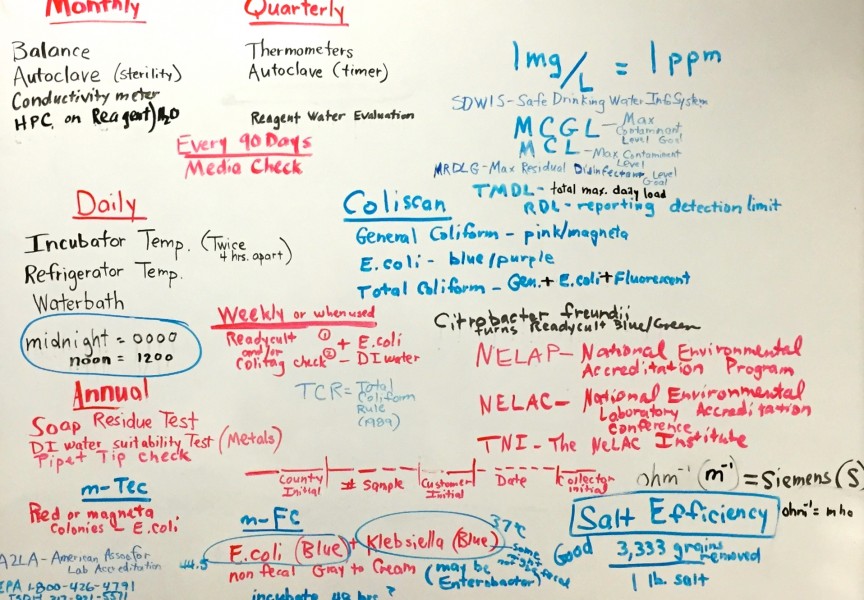 Monthly
Balance
Autoclave (sterility)
Conductivity meter
HPC on Reagent H2O
Quarterly
Thermometers
Autoclave (timer)
Reagent Water Evaluation
Every 90 Days
Media Check
1mg/L = 1ppm
SDWIS-Safe Drinking Water Info System
MCGL-Max
Contaminant
Level Goal
MCL-Max Contaminent
Level
MRDLG-Max Residual Disinfectant Level
Goal
TMDL-total max. daily load
RDL-reporting detection limit
Daily
Incubator Temp. (Twice
4 hrs. apart)
Refrigerator Temp.
Waterbath
midnight = 0000
noon = 1200
Coliscan
General Coliform - pink/magneta
E.coli - blue/purple
Total Coliform - Gen.+ E.coli+Fluorescent
Citrobacter freundii
turns Readycult Blue/Green
Weekly or when used
Readycult ① + E.coli
and/or
Colitag check ② - DI water
TCR=Total
Coliform
Rule
(1989)
NELAP-National Environmental
Accreditation Program
NELAC-National Environmental
Laboratory Accreditation
Conference
TNI-The NELAC Institute
Annual
Soap Residue Test
DI water suitability Test (Metals)
Pipet Tip check
County
Initial
# Sample
Customer
Initial
Date
Collector
initial
ohm⁻¹ (m⁻¹) = Siemens (S)
ohm⁻¹= mho
m-Tec
Red or magneta
colonies - E.coli
m-FC
E.coli (Blue) + Klebsiella (Blue)
37°C
44.5
non fecal Gray to Cream
(may be
Enterobactor)
some
might
not be fecal
incubate 48 hrs ?
Salt Efficiency
Good
3,333 grains
removed
1 lb. salt
A2LA-American Assoc for
Lab Accreditation
EPA 1-800-426-4791